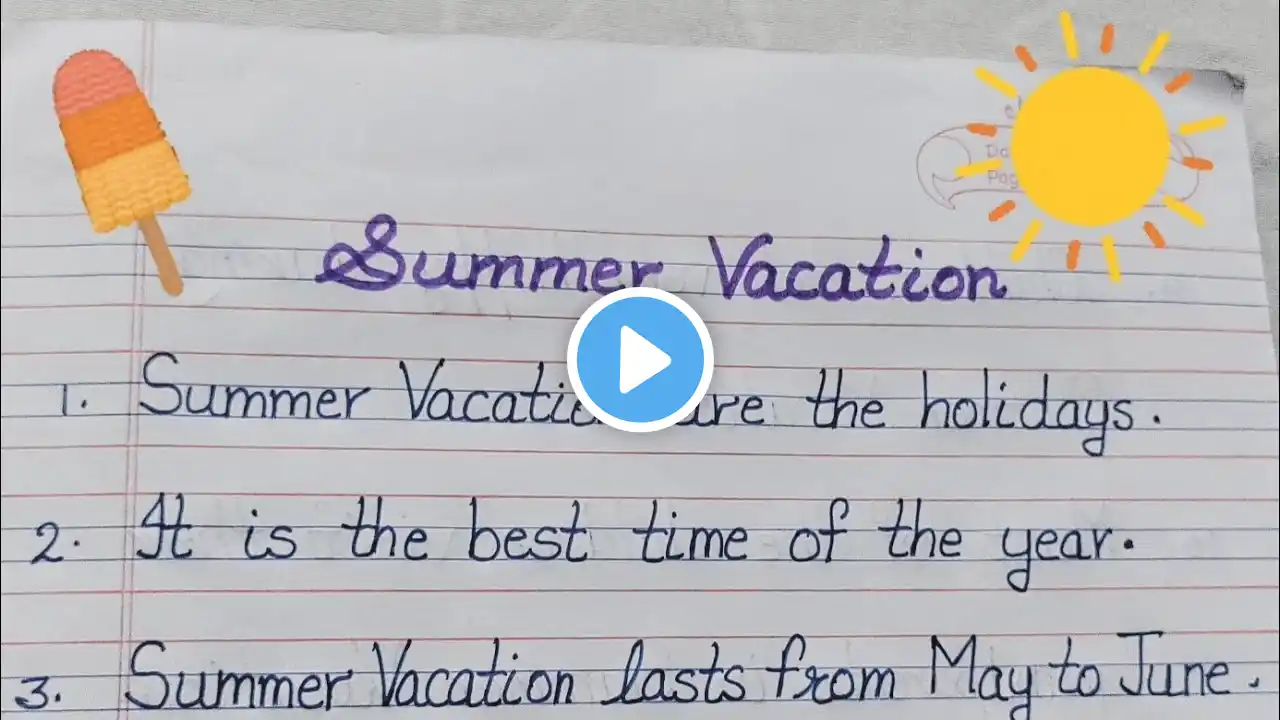 Summer Vacation
1. Summer Vacati are the holidays.
2. It is the best time of the year.
3. Summer Vacation lasts from May to June.